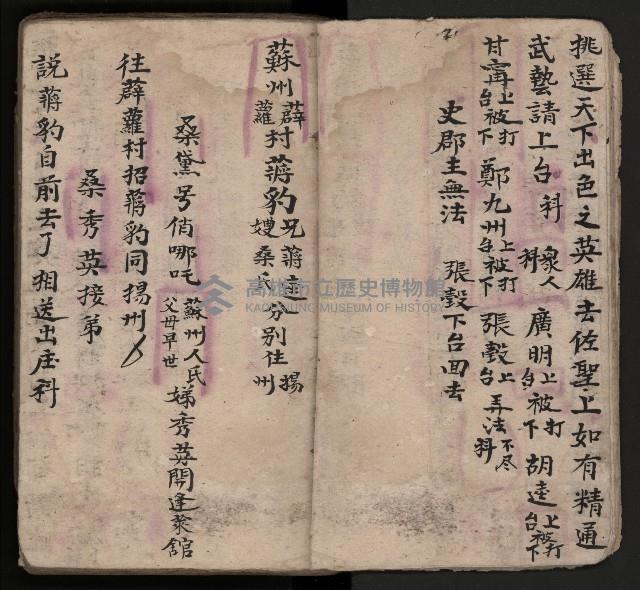 挑選天下出色之英雄去佐聖上如有精通
武藝請上台科 衆人科 廣明上台被打下 胡逵上台被打下
甘甯上台被打下 鄭九州上台被打下 張㲄上台弄法不尽科
史郡主無法 張㲄下台回去
蘇州薜蘿村蔣豹兄蔣逵嫂桑氏分別住揚州
桑黛号俏哪吒 蘇州人氏父母早世 娣秀英開逢萊舘
往薜蘿村招蔣豹同揚州
桑秀英接弟
說蔣豹自前去了相送出庄科
高雄市立歷史博物館
KAOHSIUNG MUSEUM OF HISTORY